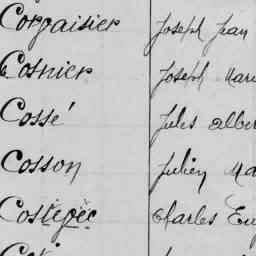 Corpaisier Joseph Jean
Cosnier Joseph Mari
Cossé Jules Alber
Cosson Julien Ma
Costepec Charles Eu